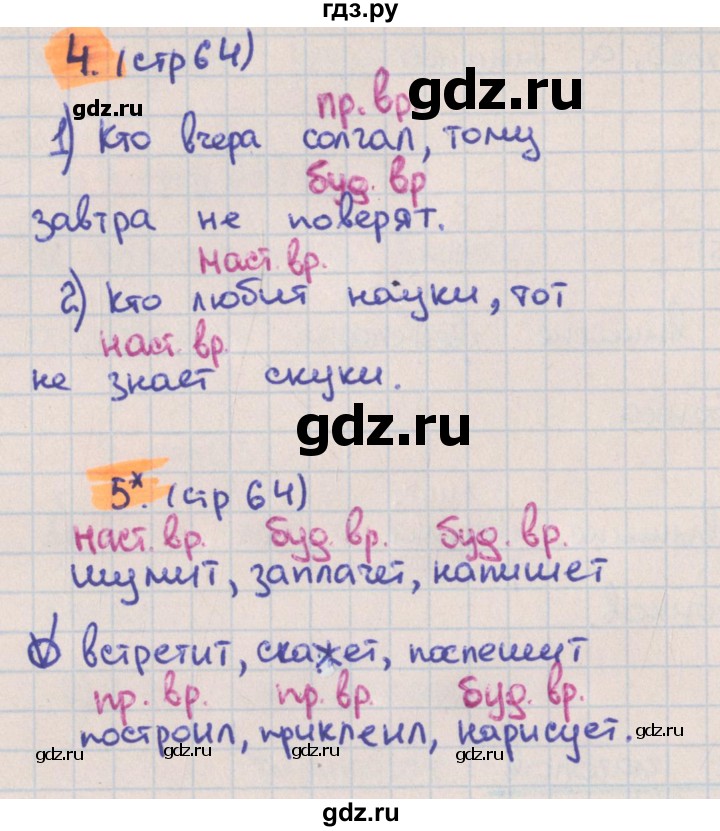 гдз.ру
4. (стр 64)
gdz.ru
gdz.ru
пр. вр.
1) Кто вчера солгал, тому
буд. вр
завтра не поверят.
наст. вр.
2) Кто любит науки, тот
наст. вр.
не знает скуки.
gdz.ru
5*. (стр 64)
gdz.ru
наст. вр. буд. вр. буд. вр.
шумит, заплачет, напишет
V встретит, скажет, поспешут
пр. вр. пр. вр. буд. вр.
построил, приклеил, нарисует.
gdz.ru gdz.ru gdz.ru
gdz.ru